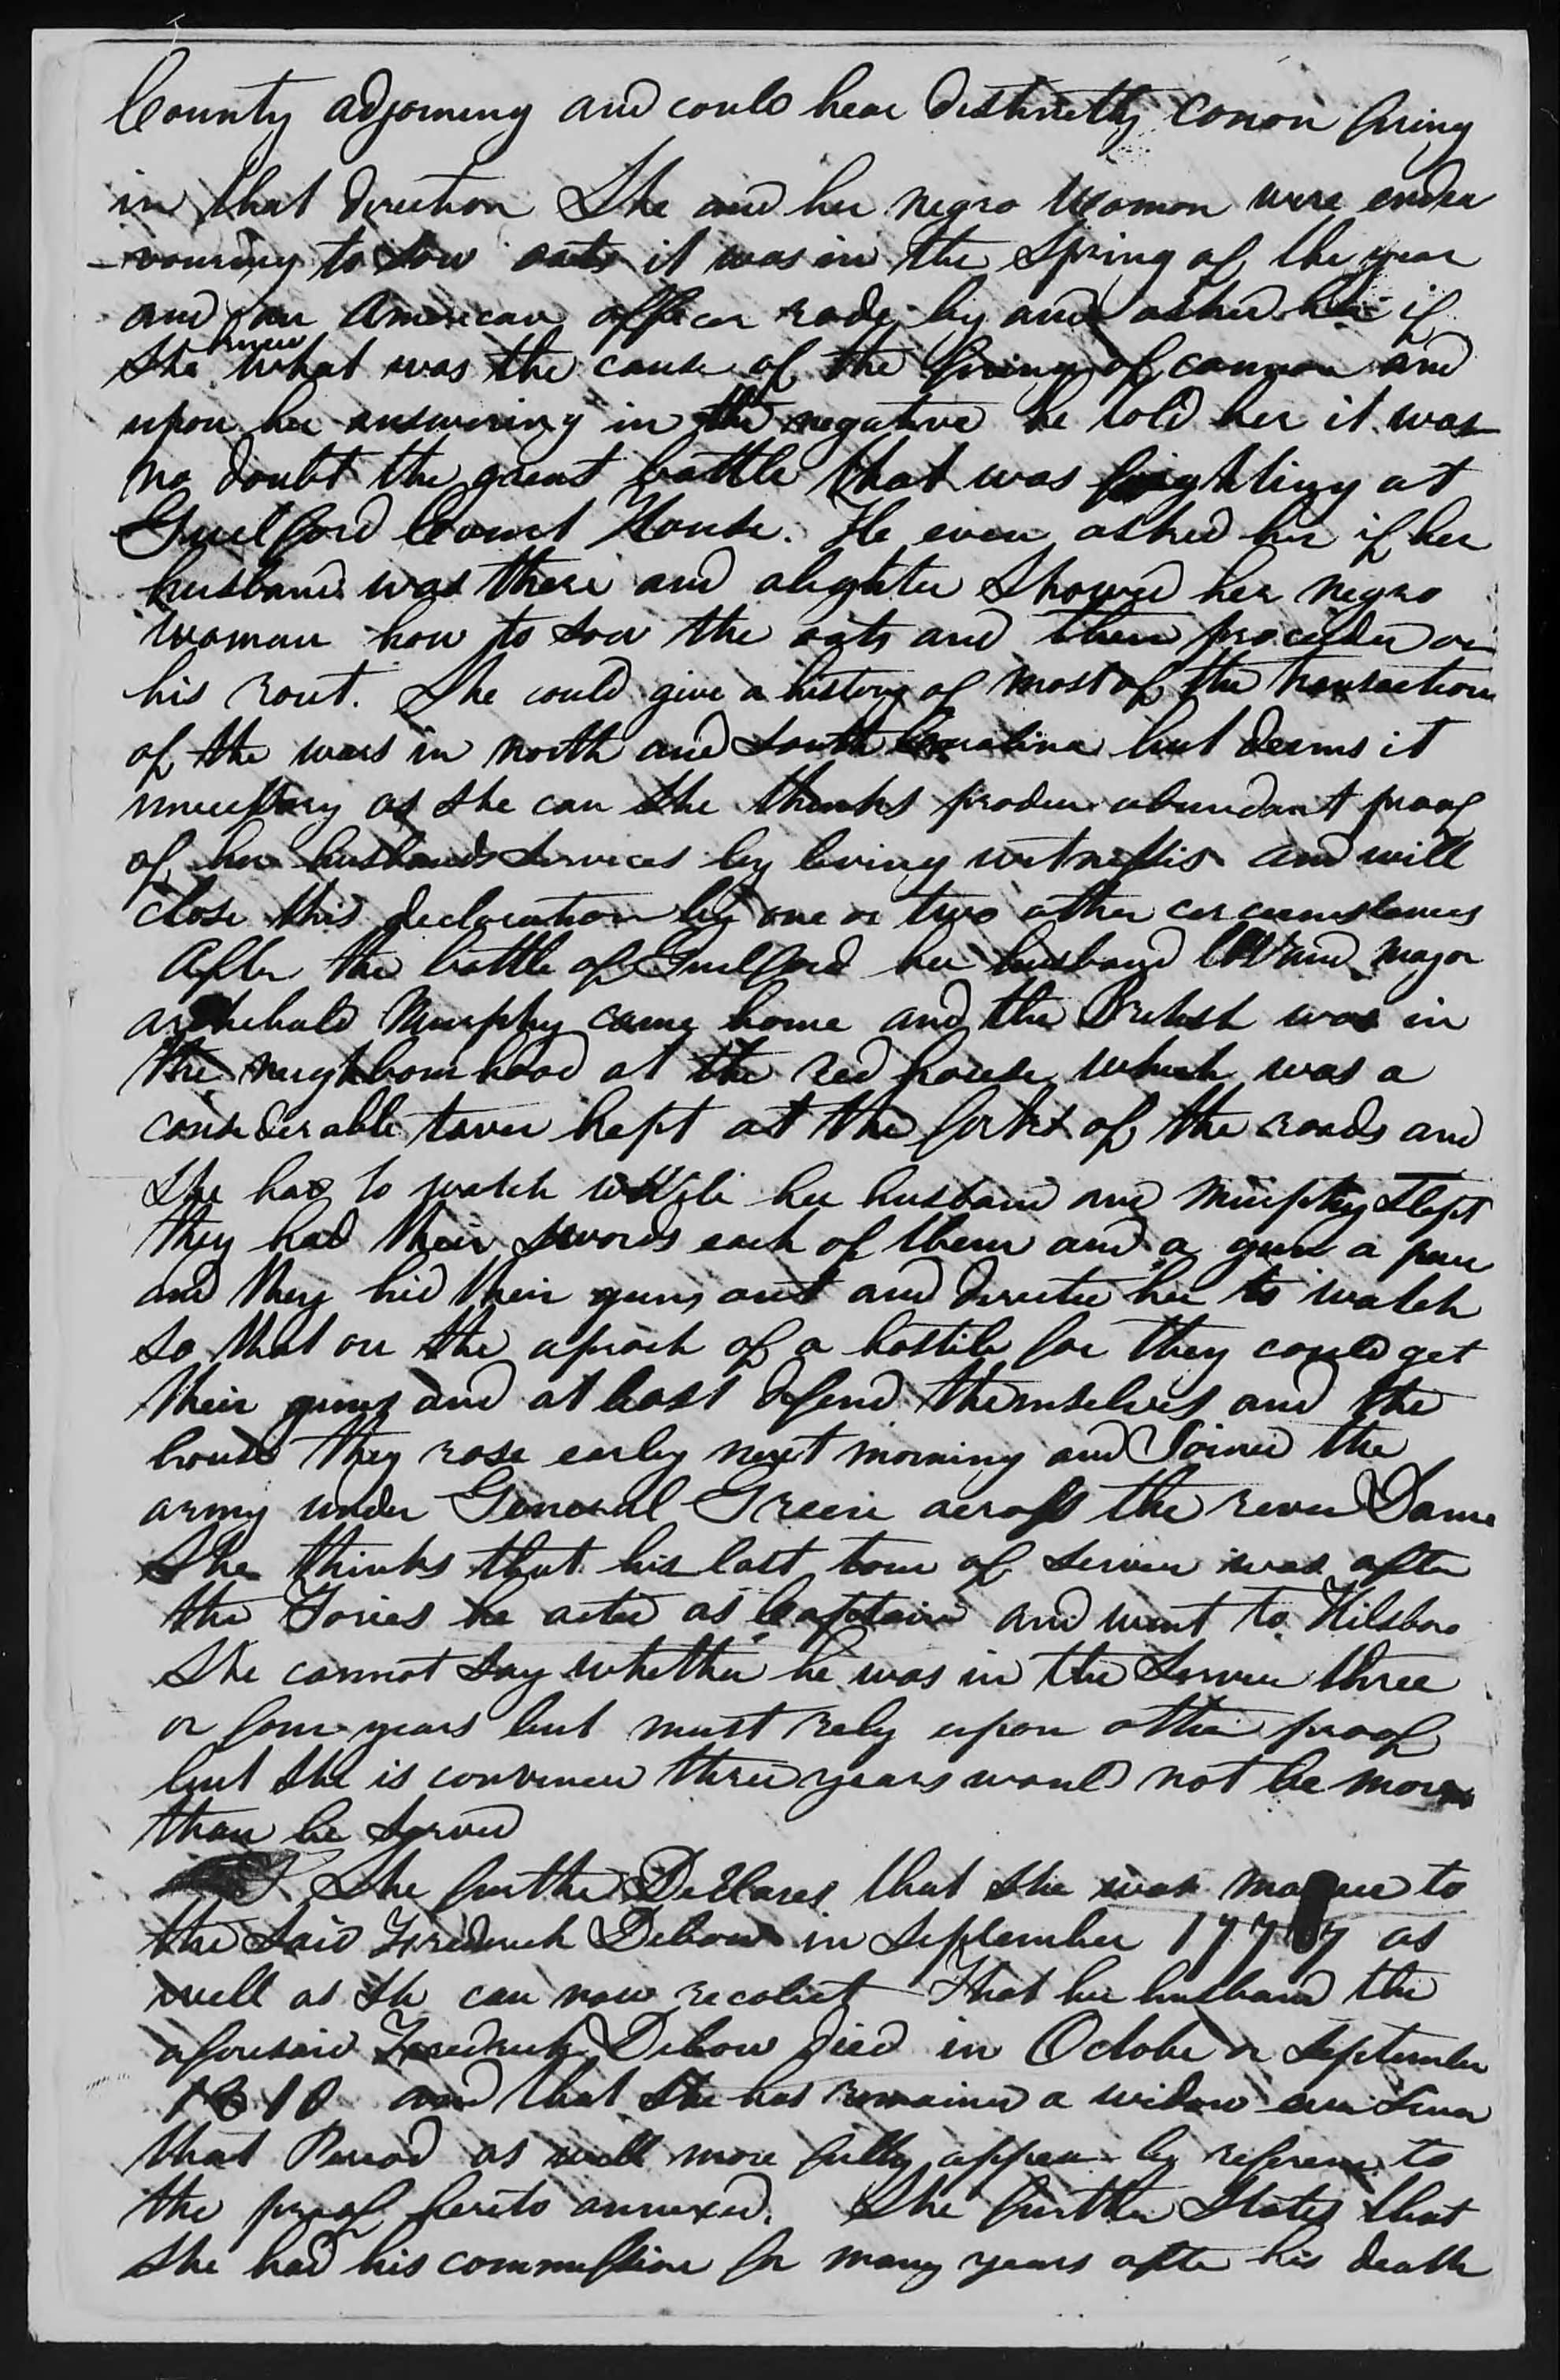 County adjoining and could hear distinctly conon firing
in that direction She and her negro Woman were endea
-vouring to sow oats it was in the Spring of the year
and an American officer rode by and asked her if
She knew what was the cause of the firing of cannon and
upon her answering in the negative he told her it was
no doubt the great battle that was fighting at
Guilford Court House. He even asked her if her
husband was there and alighted Showed her negro
woman how to sow the oats and then proceeded on
his rout. She could give a history of most of the transactions
of the wars in north and South Carolina but deems it
unnecessary as she can she thinks produce abundant proof
of her husbands Services by living witnesses and will
close this declaration by one or two other circumstances
After the battle of Guilford her husband and Major
Archebald Murphy came home and the British was in
the neighbourhood at the red house which was a
considerable taver kept at the forks of the roads and
She had to watch while her husband and Murphey Slept
they had their swords each of them and a gun a peice
and they hid their guns out and directed her to watch
so that on the aproach of a hostile foe they could get
their guns and at least defend themselves and the
house they rose earley next morning and Joined the
army under General Green across the river Dan
She thinks that his last tour of service was after
the Tories he acted as Captain and went to Hilsboro
She cannot say whether he was in the Service three
or four years but must rely upon other proof
but she is convinced three years would not be more
than he served
She further Declares that she was married to
the said Frederick Debow in September 1777 as
well as she can now recolect That her husband the
aforesaid Frederick Debow died in October or September
1810 and that she has remained a widow ever Since
that Period as will more fully appear by reference to
the proof hereto annexed. She further States that
she had his commission for many years after his death